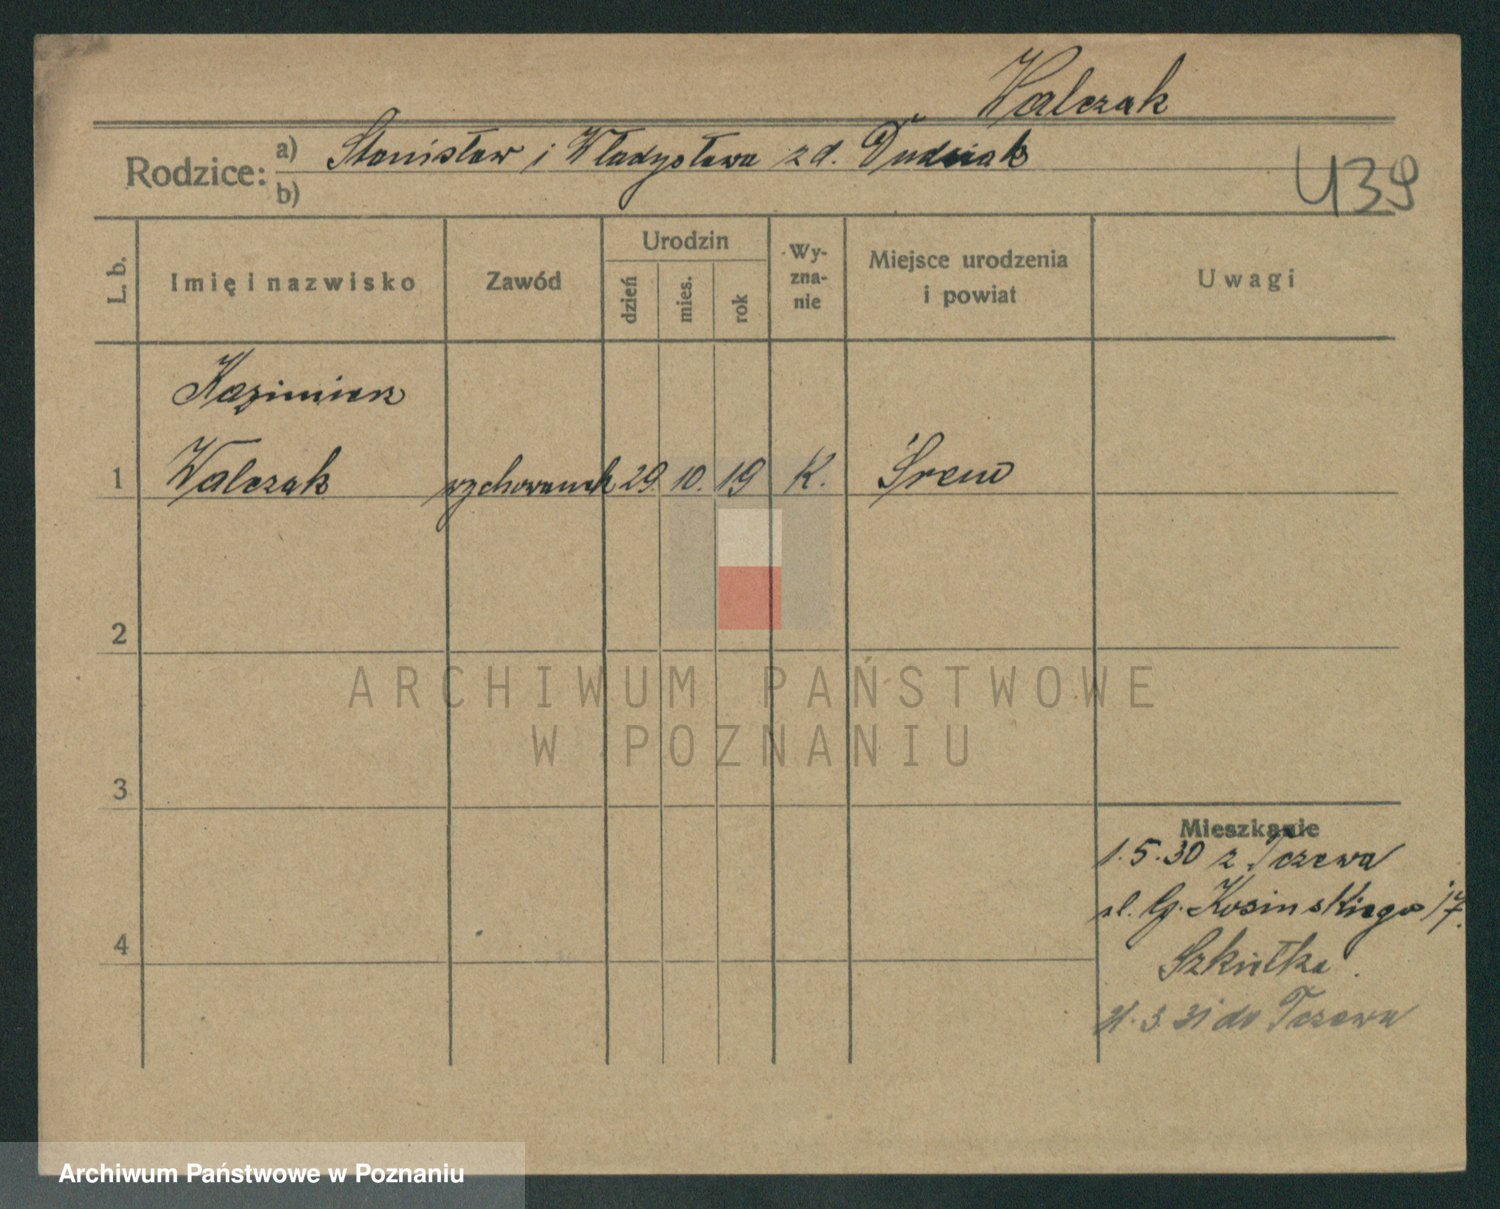 Walczak
Rodzice: a) Stanisław i Władysława z d. Dudziak
b)
439
L. b.
Imię i nazwisko
Zawód
Urodzin
dzień
mies.
rok
Wy-
zna-
nie
Miejsce urodzenia
i powiat
Uwagi
Kazimierz
1 Walczak wychowanek 29. 10. 19 K. Śrem
2
3
4
Mieszkanie
1.5.30 z Tczewa
ul. G. Kosinskiego 17.
Szkiełka.
31.3.31 do Tczewa
ARCHIWUM PAŃSTWOWE
W POZNANIU
Archiwum Państwowe w Poznaniu